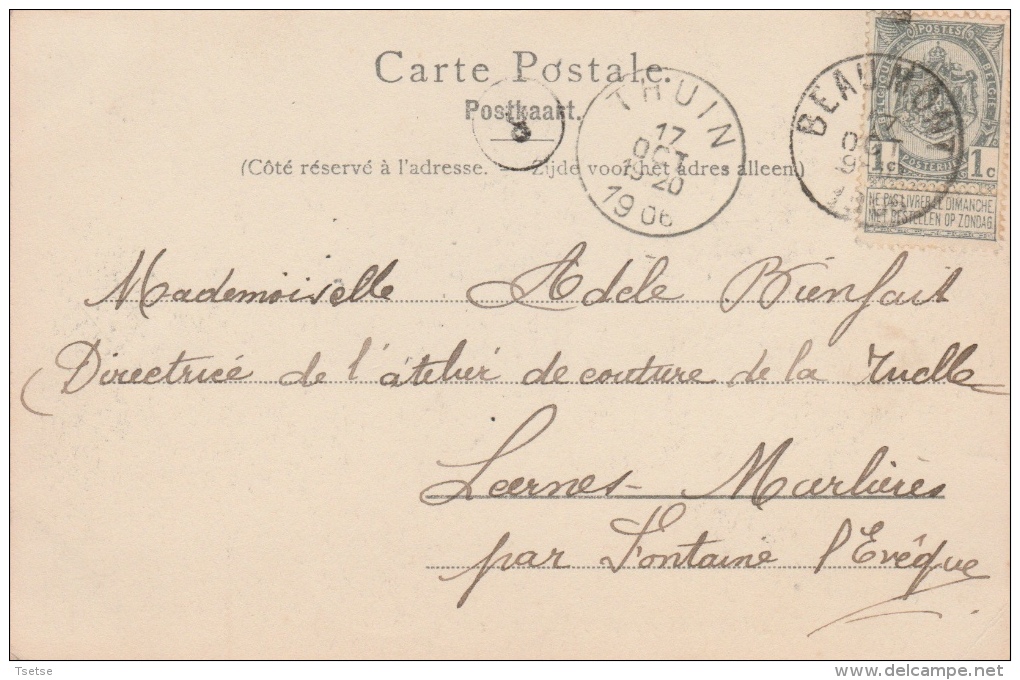 Carte Postale.
Postkaart.
(Côté réservé à l'adresse. — Zijde voor het adres alleen.)
THUIN
17
OCT
19-20
1906
BEAUMONT
OCT
POSTES
BELGIQUE
BELGIE
POSTERIJEN
1c 1c
NE PAS LIVRER LE DIMANCHE
NIET BESTELLEN OP ZONDAG
Mademoiselle Adele Bienfait
Directrice de l'atelier de couture de la Ruelle
Leernes - Marlières
par Fontaine l'Evêque
Tsetse
delcampe.net